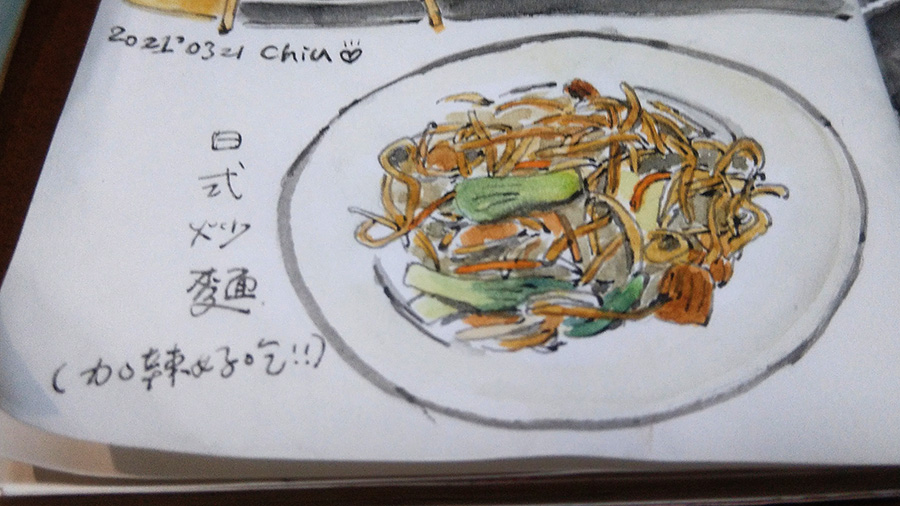 2021°0321 Chiu
日式炒麵
(加辣好吃!!)